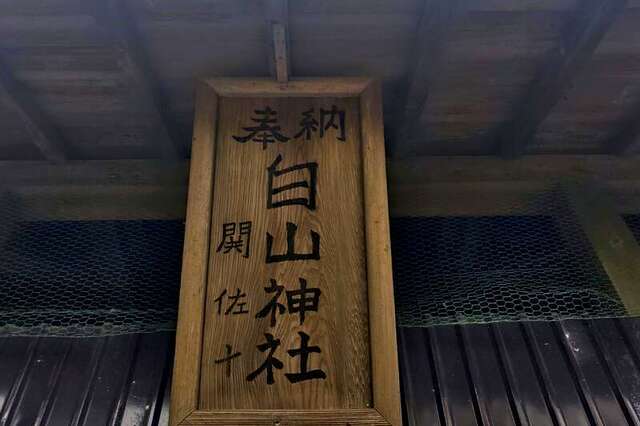 奉納
白山神社
関佐十